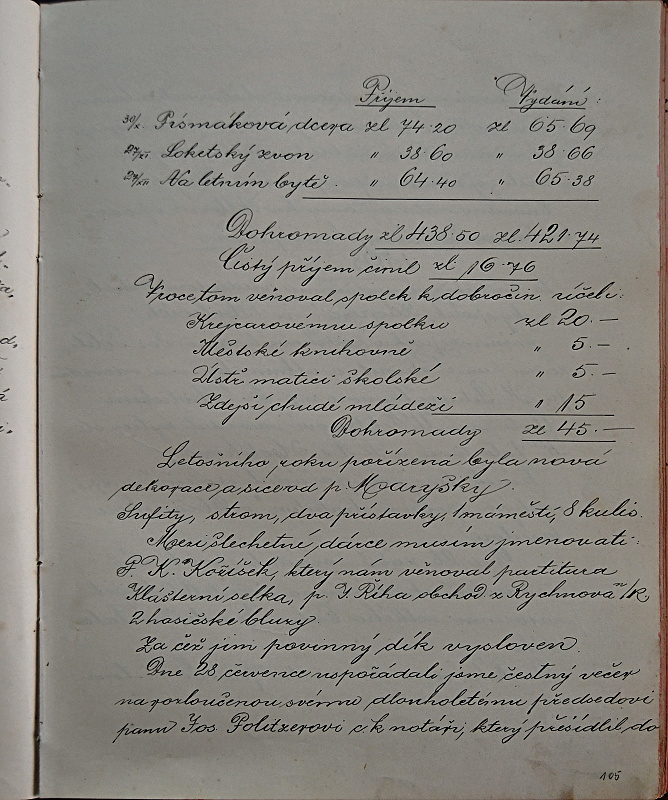 Příjem Vydání:
30/X. Písmákova dcera zl 74·20 zl 65·69
27/XI. Loketský zvon " 38·60 " 38·66
29/XII Na letním bytě. " 64·40 " 65·38
Dohromady zl 438·50 zl. 421·74
Čistý příjem činil zl. 16·76
Proce tom věnoval spolek k dobročin. účeli:
Krejcarovému spolku zl 20.—
Městské knihovně " 5.—
Ústř. matici školské " 5.—
Zdejší chudé mládeži " 15
Dohromady zl 45.—
Letošního roku pořízená byla nová
dekorace a sice od p. Maryšky.
Sufity, strom, dva přístavky, 1 náměstí, 8 kulis.
Mezi šlechetné dárce musím jmenovati:
P. K. Kožíšek, který nám věnoval partitura
Klášterní selka, p. J. Říha obchod z Rychnova n/K,
2 hasičské bluzy.
Za čež jim povinný dík vysloven.
Dne 28 července uspořádali jsme čestný večer
na rozloučenou svému dlouholetému předsedovi
panu Jos. Politzerovi c. k. notáři, který přesídlil do
105